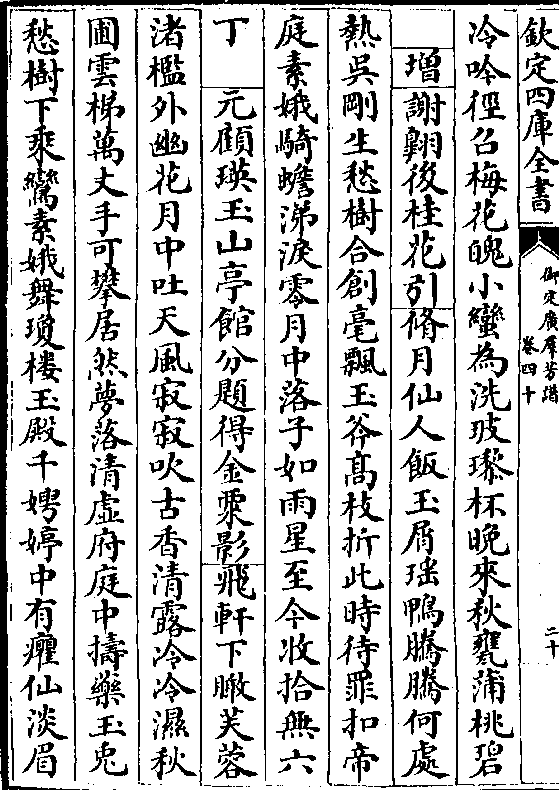 欽定四庫全書
御定廣群芳譜
卷四十
二十
冷吟徑召梅花魄小蠻為洗玻瓈杯晚來秋甕蒲桃碧
增謝翺後桂花引脩月仙人飯玉屑瑤鴨騰騰何處
熱吳剛生愁樹合創毫飄玉斧髙枝折此時待罪扣帝
庭素娥騎蟾涕淚零月中落子如雨星至今收拾無六
丁 元顧瑛玉山亭館分題得金粟影飛軒下瞰芙蓉
渚檻外幽花月中吐天風寂寂吹古香清露泠泠濕秋
圃雲梯萬丈手可攀居然夢落清虛府庭中擣藥玉兎
愁樹下乘鸞素娥舞瓊樓玉殿千娉婷中有癯仙淡眉